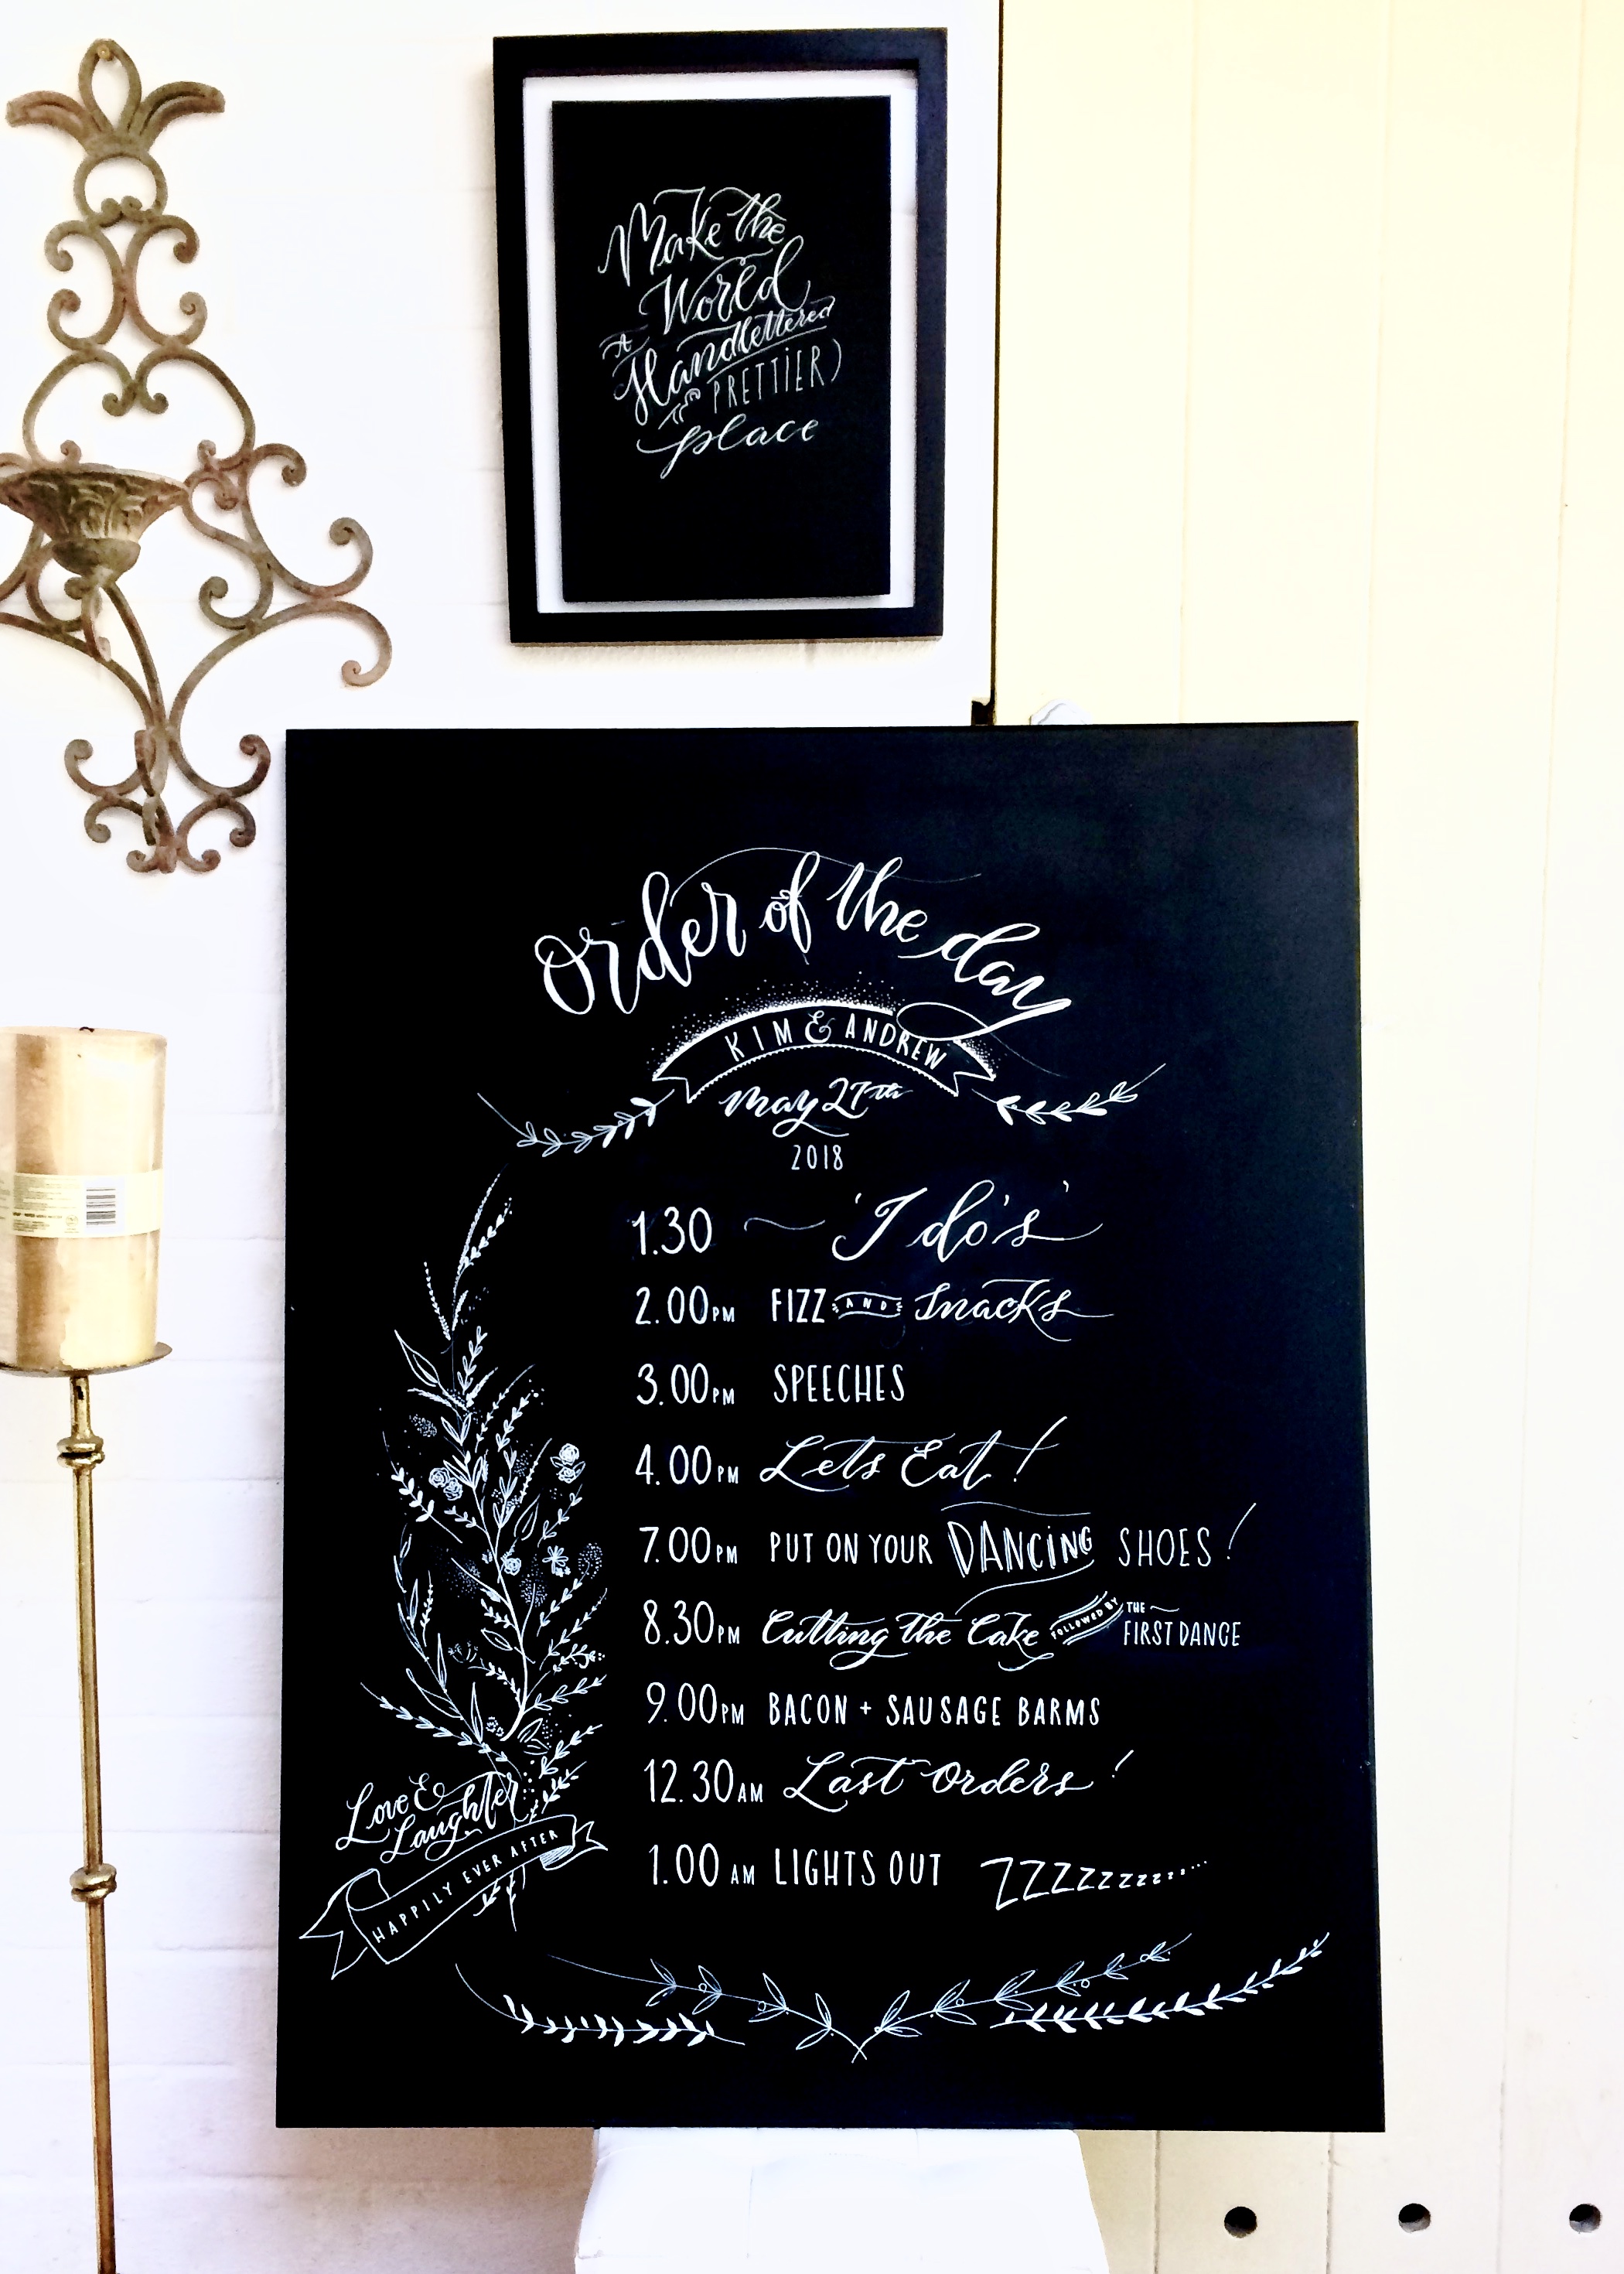 Make the
World
A
Handlettered
(& PRETTIER)
place
Order of the day
KIM & ANDREW
May 27th
2018
1.30 'I do's'
2.00PM FIZZ AND Snacks
3.00PM SPEECHES
4.00PM Lets Eat!
7.00PM PUT ON YOUR DANCING SHOES!
8.30PM Cutting the Cake FOLLOWED BY THE FIRST DANCE
9.00PM BACON + SAUSAGE BARMS
12.30AM Last Orders!
1.00AM LIGHTS OUT ZZZZZzzzzz......
Love &
Laughter
HAPPILY EVER AFTER